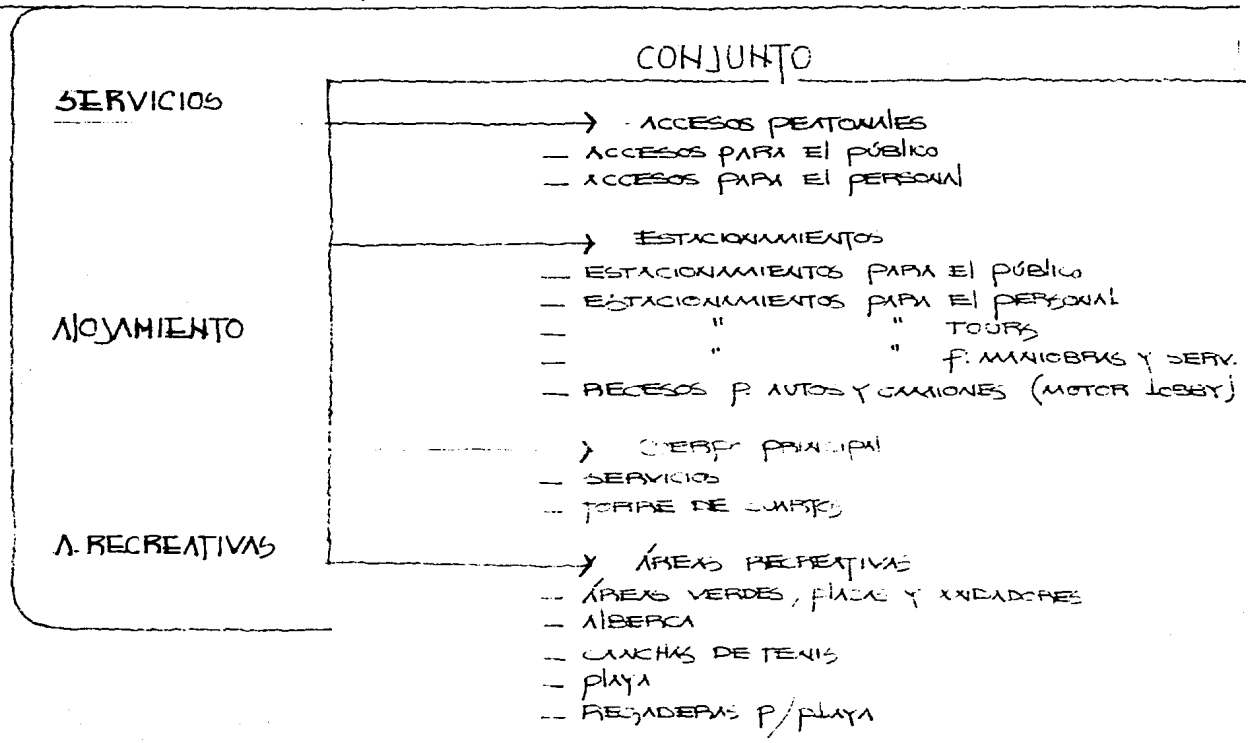 CONJUNTO
SERVICIOS
→ ACCESOS PEATONALES
— ACCESOS PARA El PÚBlICO
— ACCESOS PARA El PERSONAl
→ ESTACIONAMIENTOS
— ESTACIONAMIENTOS PARA El PÚBlICO
— ESTACIONAMIENTOS PARA El PERSONAL
AlOJAMIENTO
— " " TOURS
— " " P. MANIOBRAS Y SERV.
— RECESOS P. AUTOS Y CAMIONES (MOTOR LOBBY)
→ CUERPO PRINCIPAl
— SERVICIOS
— TORRE DE CUARTOS
A. RECREATIVAS
→ ÁREAS RECREATIVAS
— ÁREAS VERDES, PlAZAS Y ANDADORES
— AlBERCA
— CANCHAS DE TENIS
— PlAYA
— REGADERAS P/PLAYA